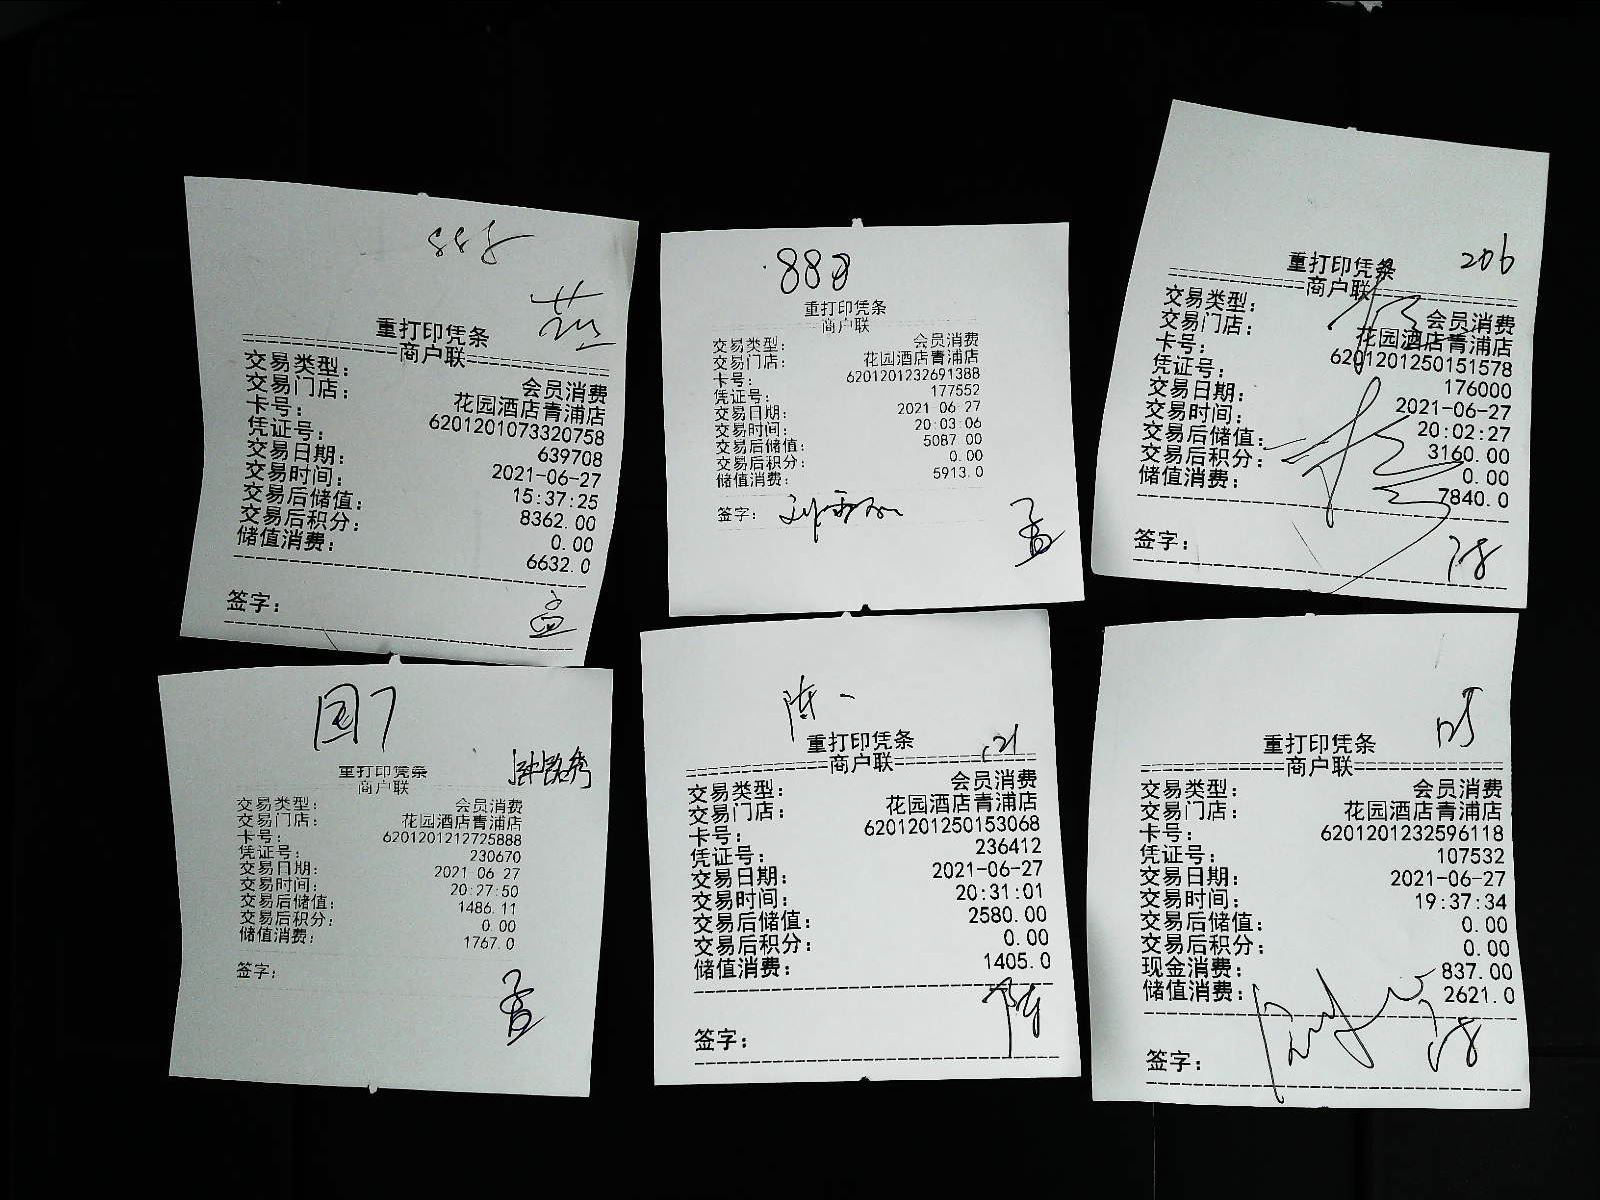 888
重打印凭条
===商户联===
交易类型: 会员消费
交易门店: 花园酒店青浦店
卡号: 6201201073320758
凭证号: 639708
交易日期: 2021-06-27
交易时间: 15:37:25
交易后储值: 8362.00
交易后积分: 0.00
储值消费: 6632.0
签字:
孟
888
重打印凭条
商户联
交易类型: 会员消费
交易门店: 花园酒店青浦店
卡号: 6201201232691388
凭证号: 177552
交易日期: 2021-06-27
交易时间: 20:03:06
交易后储值: 5087.00
交易后积分: 0.00
储值消费: 5913.0
签字:
孟
206
重打印凭条
===商户联===
交易类型: 会员消费
交易门店: 花园酒店青浦店
卡号: 6201201250151578
凭证号: 176000
交易日期: 2021-06-27
交易时间: 20:02:27
交易后储值: 3160.00
交易后积分: 0.00
储值消费: 7840.0
签字:
国7
重打印凭条
商户联
交易类型: 会员消费
交易门店: 花园酒店青浦店
卡号: 6201201212725888
凭证号: 230670
交易日期: 2021-06-27
交易时间: 20:27:50
交易后储值: 1486.11
交易后积分: 0.00
储值消费: 1767.0
签字:
孟
陈一
重打印凭条
===商户联===
交易类型: 会员消费
交易门店: 花园酒店青浦店
卡号: 6201201250153068
凭证号: 236412
交易日期: 2021-06-27
交易时间: 20:31:01
交易后储值: 2580.00
交易后积分: 0.00
储值消费: 1405.0
陈
签字:
重打印凭条
===商户联===
交易类型: 会员消费
交易门店: 花园酒店青浦店
卡号: 6201201232596118
凭证号: 107532
交易日期: 2021-06-27
交易时间: 19:37:34
交易后储值: 0.00
交易后积分: 0.00
现金消费: 837.00
储值消费: 2621.0
签字: